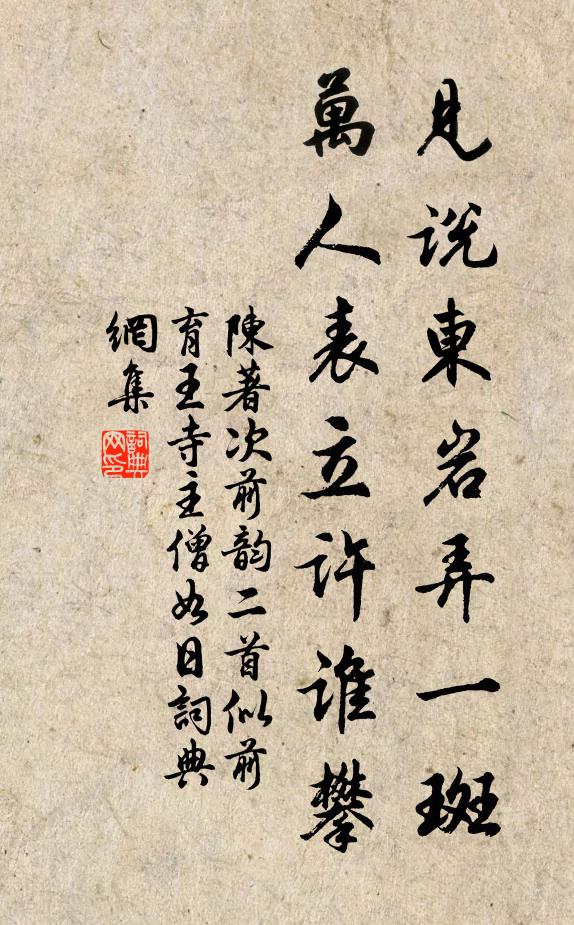 見说東岩弄一斑
萬人表立許誰攀
陳著次前韵二首似前
育王寺主僧如日詞典
網集
詞典网印